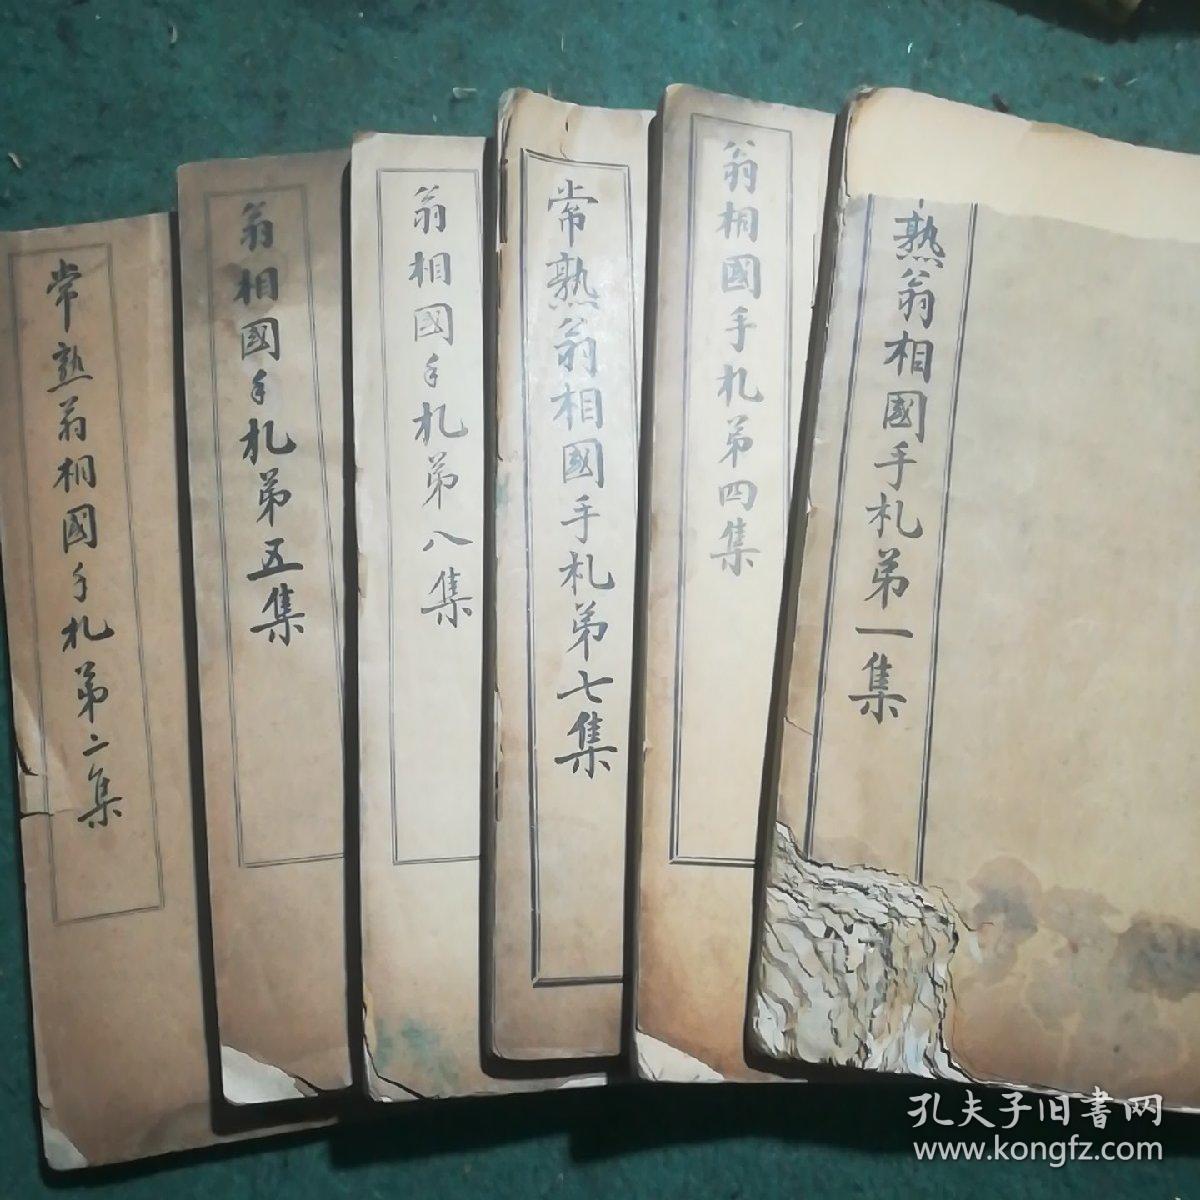 熟翁相國手札第一集
翁相國手札第四集
常熟翁相國手札第七集
翁相國手札第八集
翁相國手札第五集
常熟翁相國手札第二集
孔夫子旧書网
www.kongfz.com